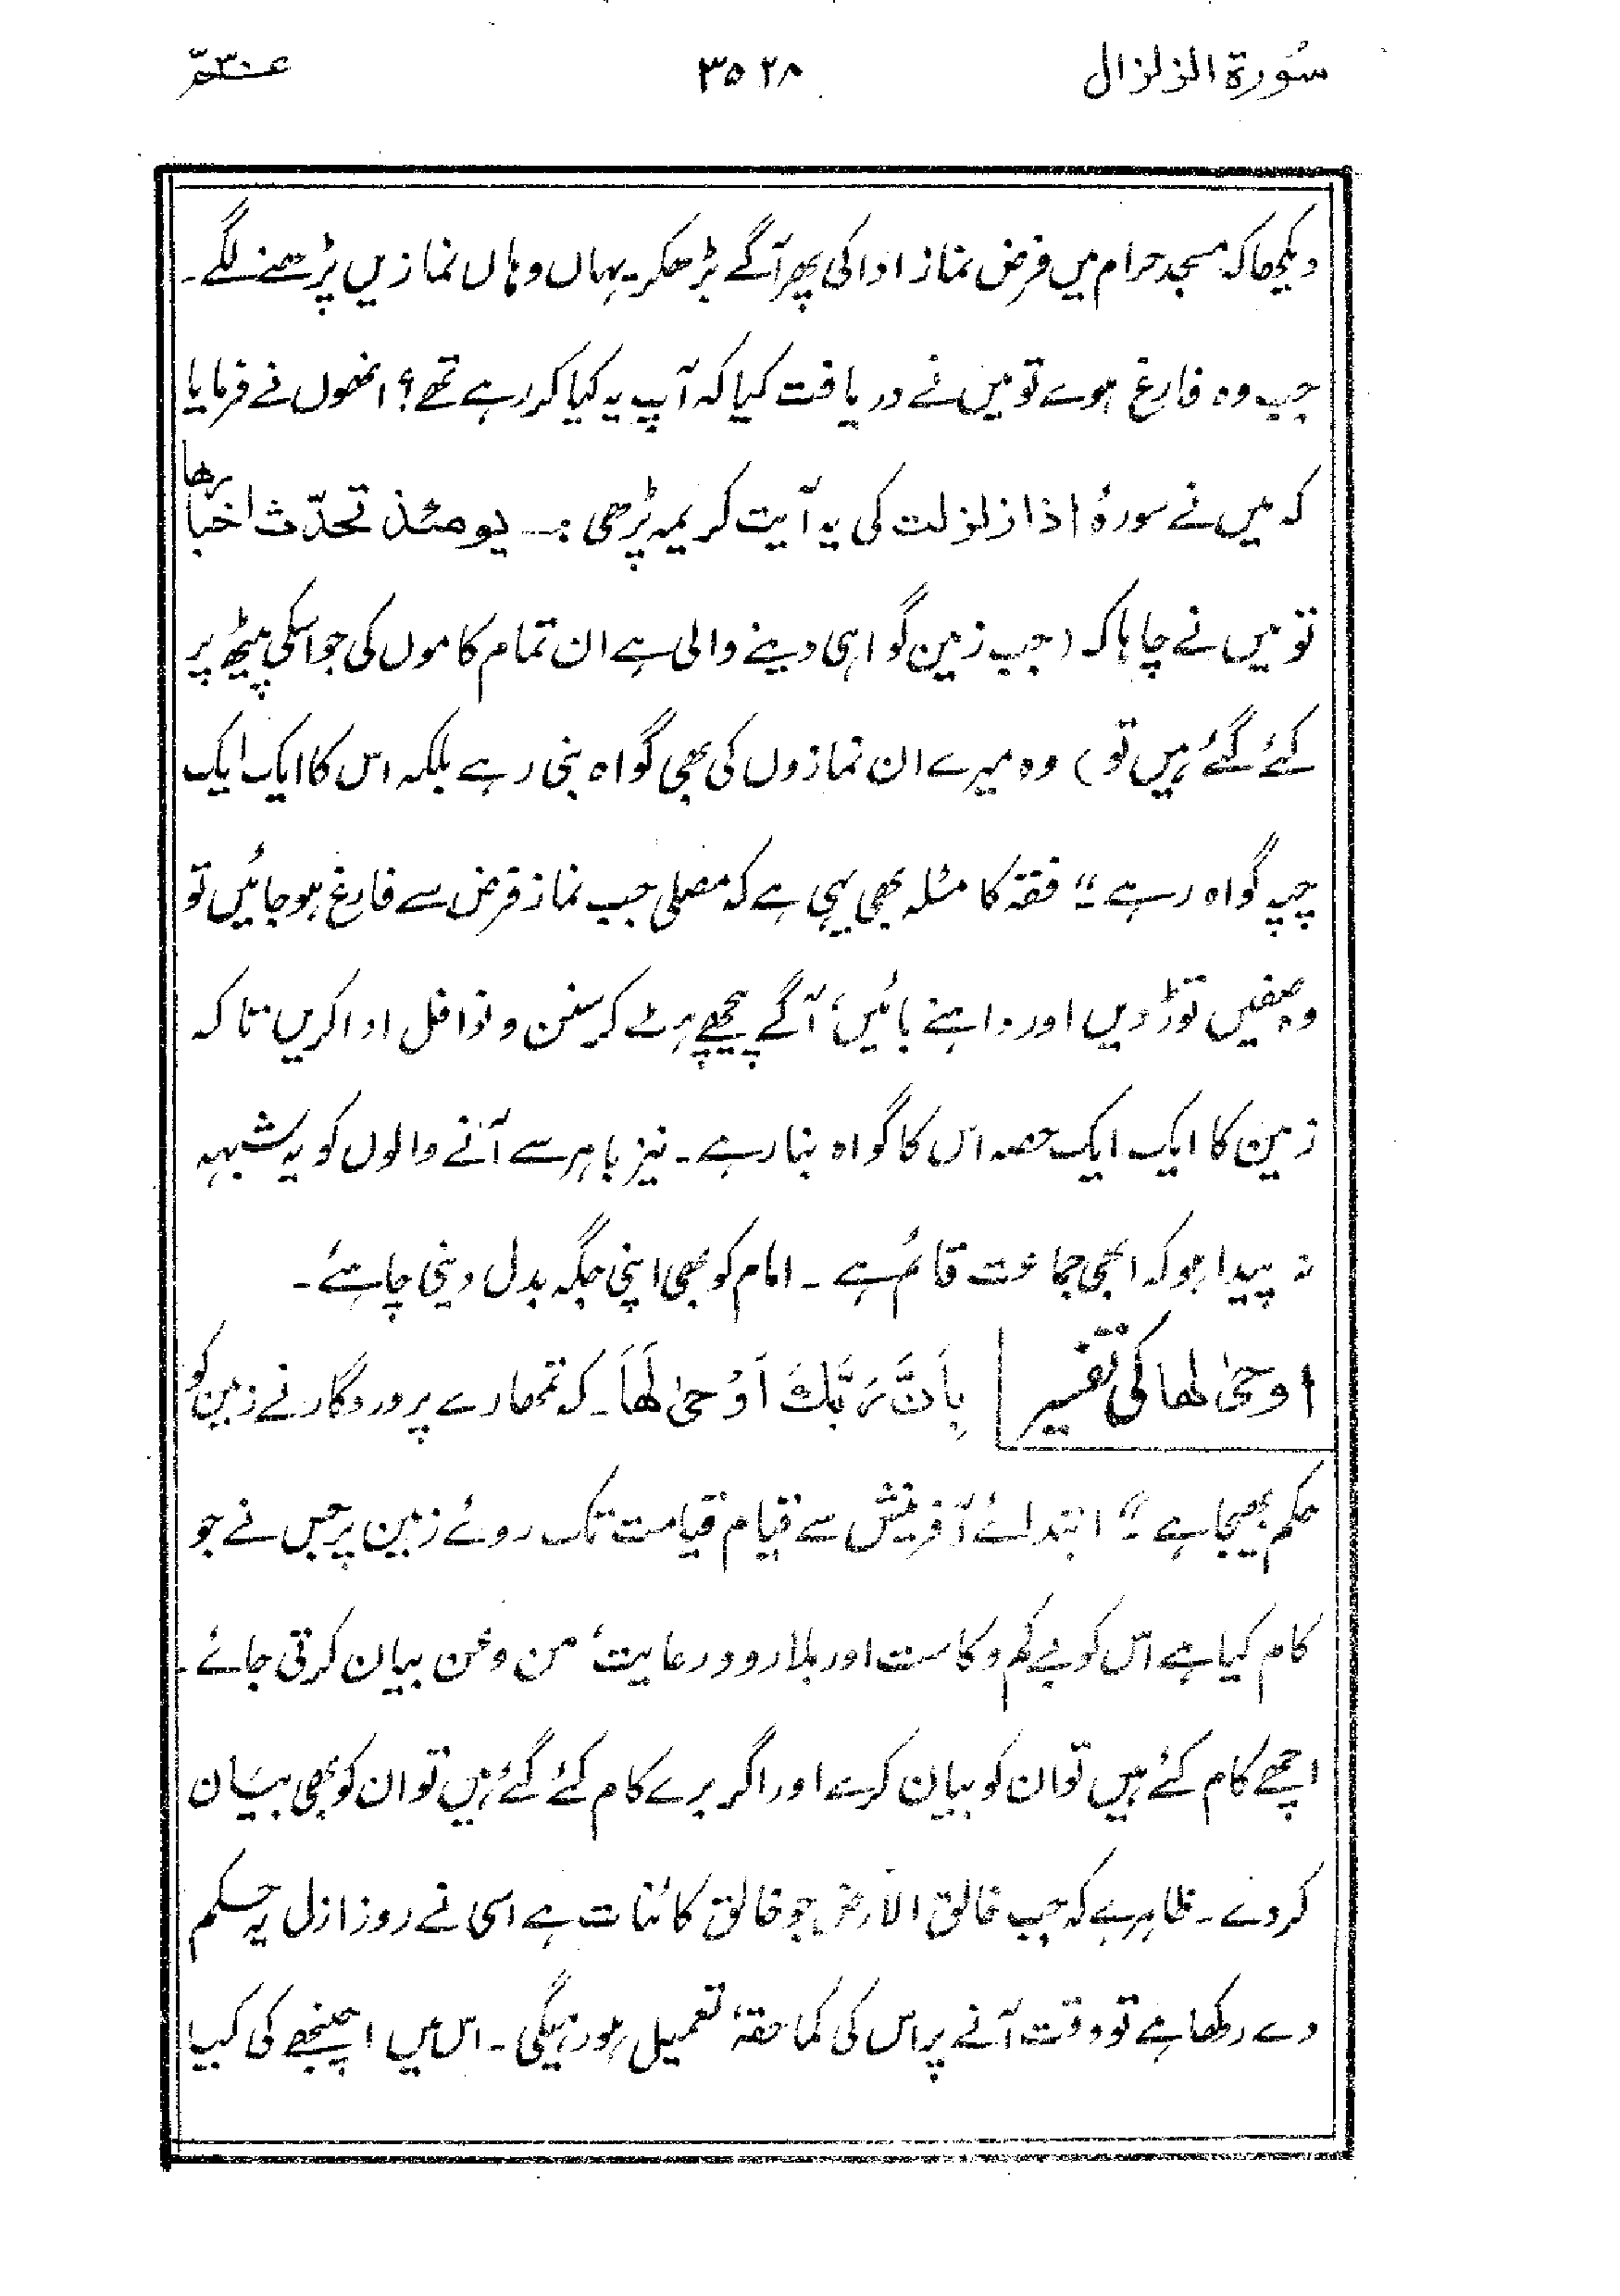 سُورۃ الزلزال
۳۵۲۸
عمّ ۳۰
دیکھا کہ مسجد حرام میں فرض نماز ادا کی پھر آگے بڑھکر یہاں وہاں نمازیں پڑھنے لگے۔
جب وہ فارغ ہوے تو میں نے دریافت کیا کہ آپ یہ کیا کر رہے تھے؟ انھوں نے فرمایا
کہ میں نے سورۂ اذا زلزلت کی یہ آیت کریمہ پڑھی :۔ یومئذ تحدّث اخبارھا
تو میں نے چاہا کہ (جب زمین گواہی دینے والی ہے ان تمام کاموں کی جو اسکی پیٹھ پر
کئے گئے ہیں تو) وہ میرے ان نمازوں کی بھی گواہ بنی رہے بلکہ اس کا ایک ایک
چپہ گواہ رہے" فقہ کا مسٔلہ بھی یہی ہے کہ مصلی جب نماز فرض سے فارغ ہو جائیں تو
وہ صفیں توڑ دیں اور داہنے بائیں، آگے پیچھے ہٹ کر سنن و نوافل ادا کریں تاکہ
زمین کا ایک ایک حصہ اس کا گواہ بنا رہے۔ نیز باہر سے آنے والوں کو یہ شبہہ
نہ پیدا ہو کہ ابھی جماعت قائم ہے۔ امام کو بھی اپنی جگہ بدل دینی چاہئے۔
اوحیٰ لھا کی تفسیر بِاَنَّ رَبَّكَ اَوْحیٰ لَھَا۔ کہ تمھارے پروردگار نے زمین کو
حکم بھیجا ہے"۔ ابتدائے آفرینش سے قیام قیامت تک روئے زمین پر جس نے جو
کام کیا ہے اس کو بے کم و کاست اور بلا رو و رعایت، من و عن بیان کرتی جائے۔
اچھے کام کئے ہیں تو ان کو بیان کرے اور اگر برے کام کئے گئے ہیں تو ان کو بھی بیان
کر دے۔ ظاہر ہے کہ جب خالق الارض جو خالق کائنات ہے اسی نے روز ازل یہ حکم
دے رکھا ہے تو وقت آنے پر اس کی کماحقہٗ تعمیل ہو رہیگی۔ اس میں اچنبھے کی کیا